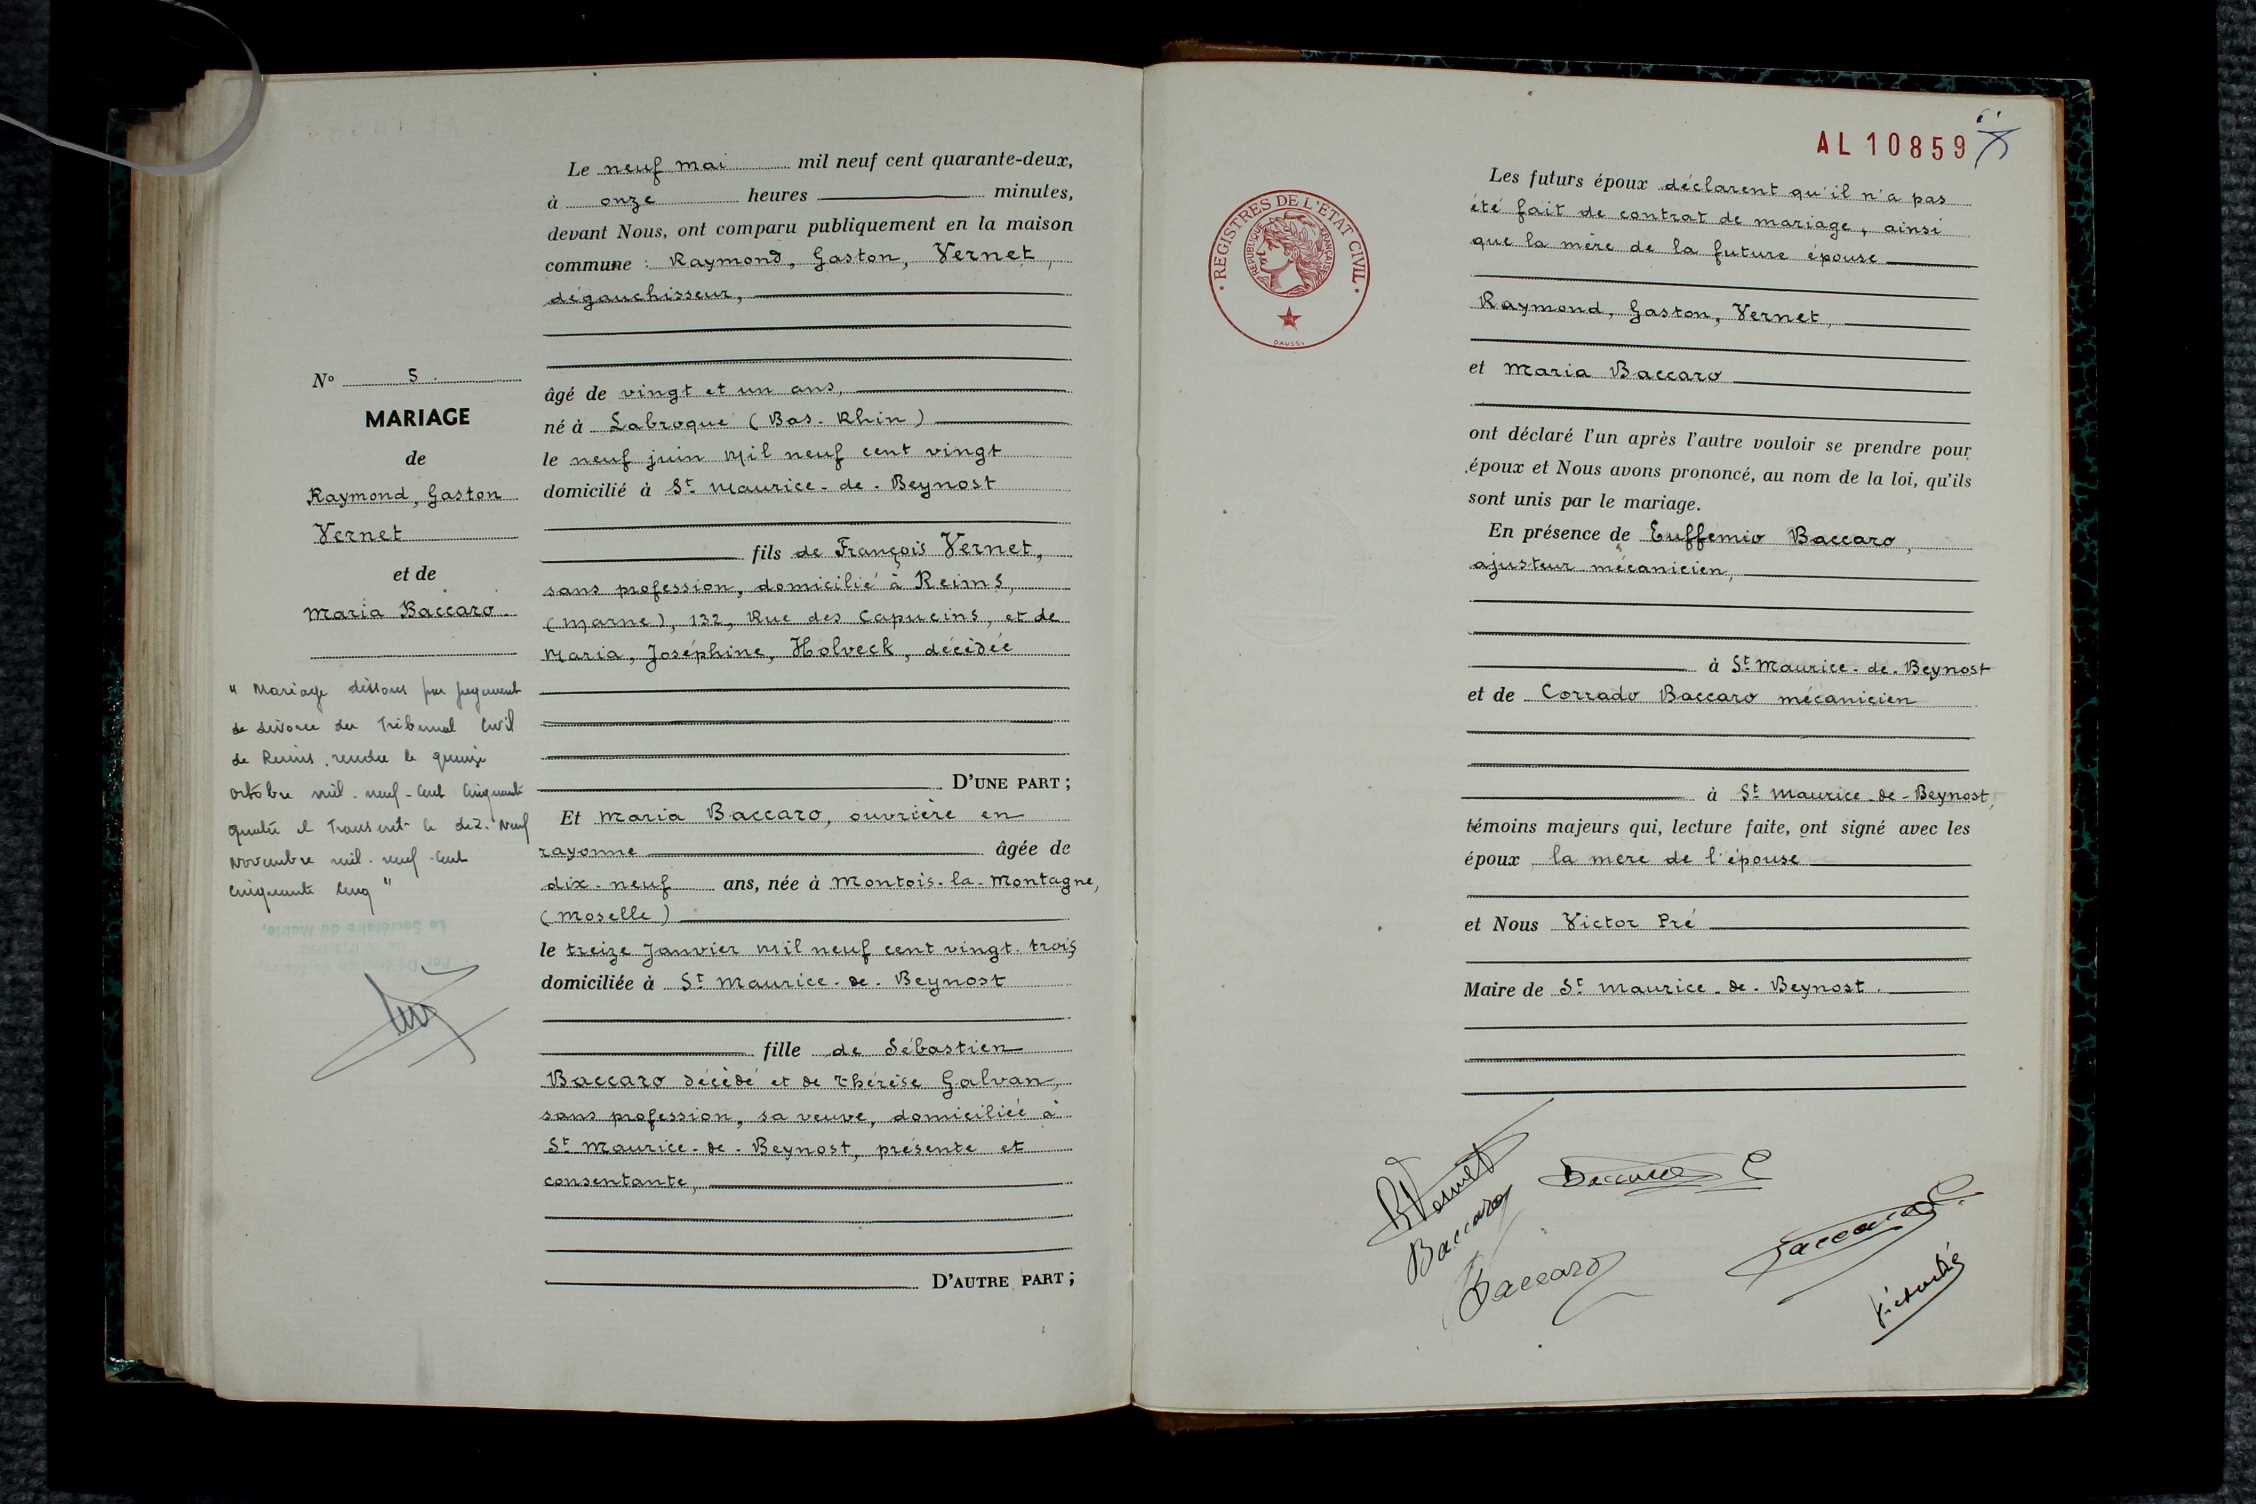 Le neuf mai mil neuf cent quarante-deux,
à onze heures minutes,
devant Nous, ont comparu publiquement en la maison
commune : Raymond, Gaston, Vernet,
dégauchisseur,
âgé de vingt et un ans,
né à Labroque (Bas-Rhin)
le neuf juin mil neuf cent vingt
domicilié à St Maurice-de-Beynost
fils de François Vernet,
sans profession, domicilié à Reims,
(Marne), 132, Rue des Capucins, et de
Maria, Joséphine, Holveck, décédée
D'UNE PART ;
Et Maria Baccaro, ouvrière en
rayonne âgée de
dix-neuf ans, née à Montois-la-Montagne,
(Moselle)
le treize Janvier mil neuf cent vingt-trois
domiciliée à St Maurice-de-Beynost
fille de Sébastien
Baccaro décédé et de Thérèse Galvan,
sans profession, sa veuve, domiciliée à
St Maurice-de-Beynost, présente et
consentante,
D'AUTRE PART ;
No 5.
MARIAGE
de
Raymond, Gaston
Vernet
et de
Maria Baccaro
" Mariage dissous par jugement
de divorce du Tribunal Civil
de Reims, rendu le quinze
octobre mil-neuf-cent cinquante
quatre et transcrit le dix-neuf
Novembre mil-neuf-cent
cinquante cinq "
Le Secrétaire de Mairie,
AL 10859
REGISTRES DE L'ÉTAT CIVIL
RÉPUBLIQUE FRANÇAISE
DAUSSY
Les futurs époux déclarent qu'il n'a pas
été fait de contrat de mariage, ainsi
que la mère de la future épouse
Raymond, Gaston, Vernet,
et Maria Baccaro
ont déclaré l'un après l'autre vouloir se prendre pour
époux et Nous avons prononcé, au nom de la loi, qu'ils
sont unis par le mariage.
En présence de Euffemio Baccaro,
ajusteur mécanicien,
à St Maurice-de-Beynost
et de Corrado Baccaro mécanicien
à St Maurice-de-Beynost,
témoins majeurs qui, lecture faite, ont signé avec les
époux la mère de l'épouse
et Nous Victor Pré
Maire de St Maurice-de-Beynost.
R Vernet
Baccaro
Baccaro
Baccaro C
Baccaro E
Victor Pré